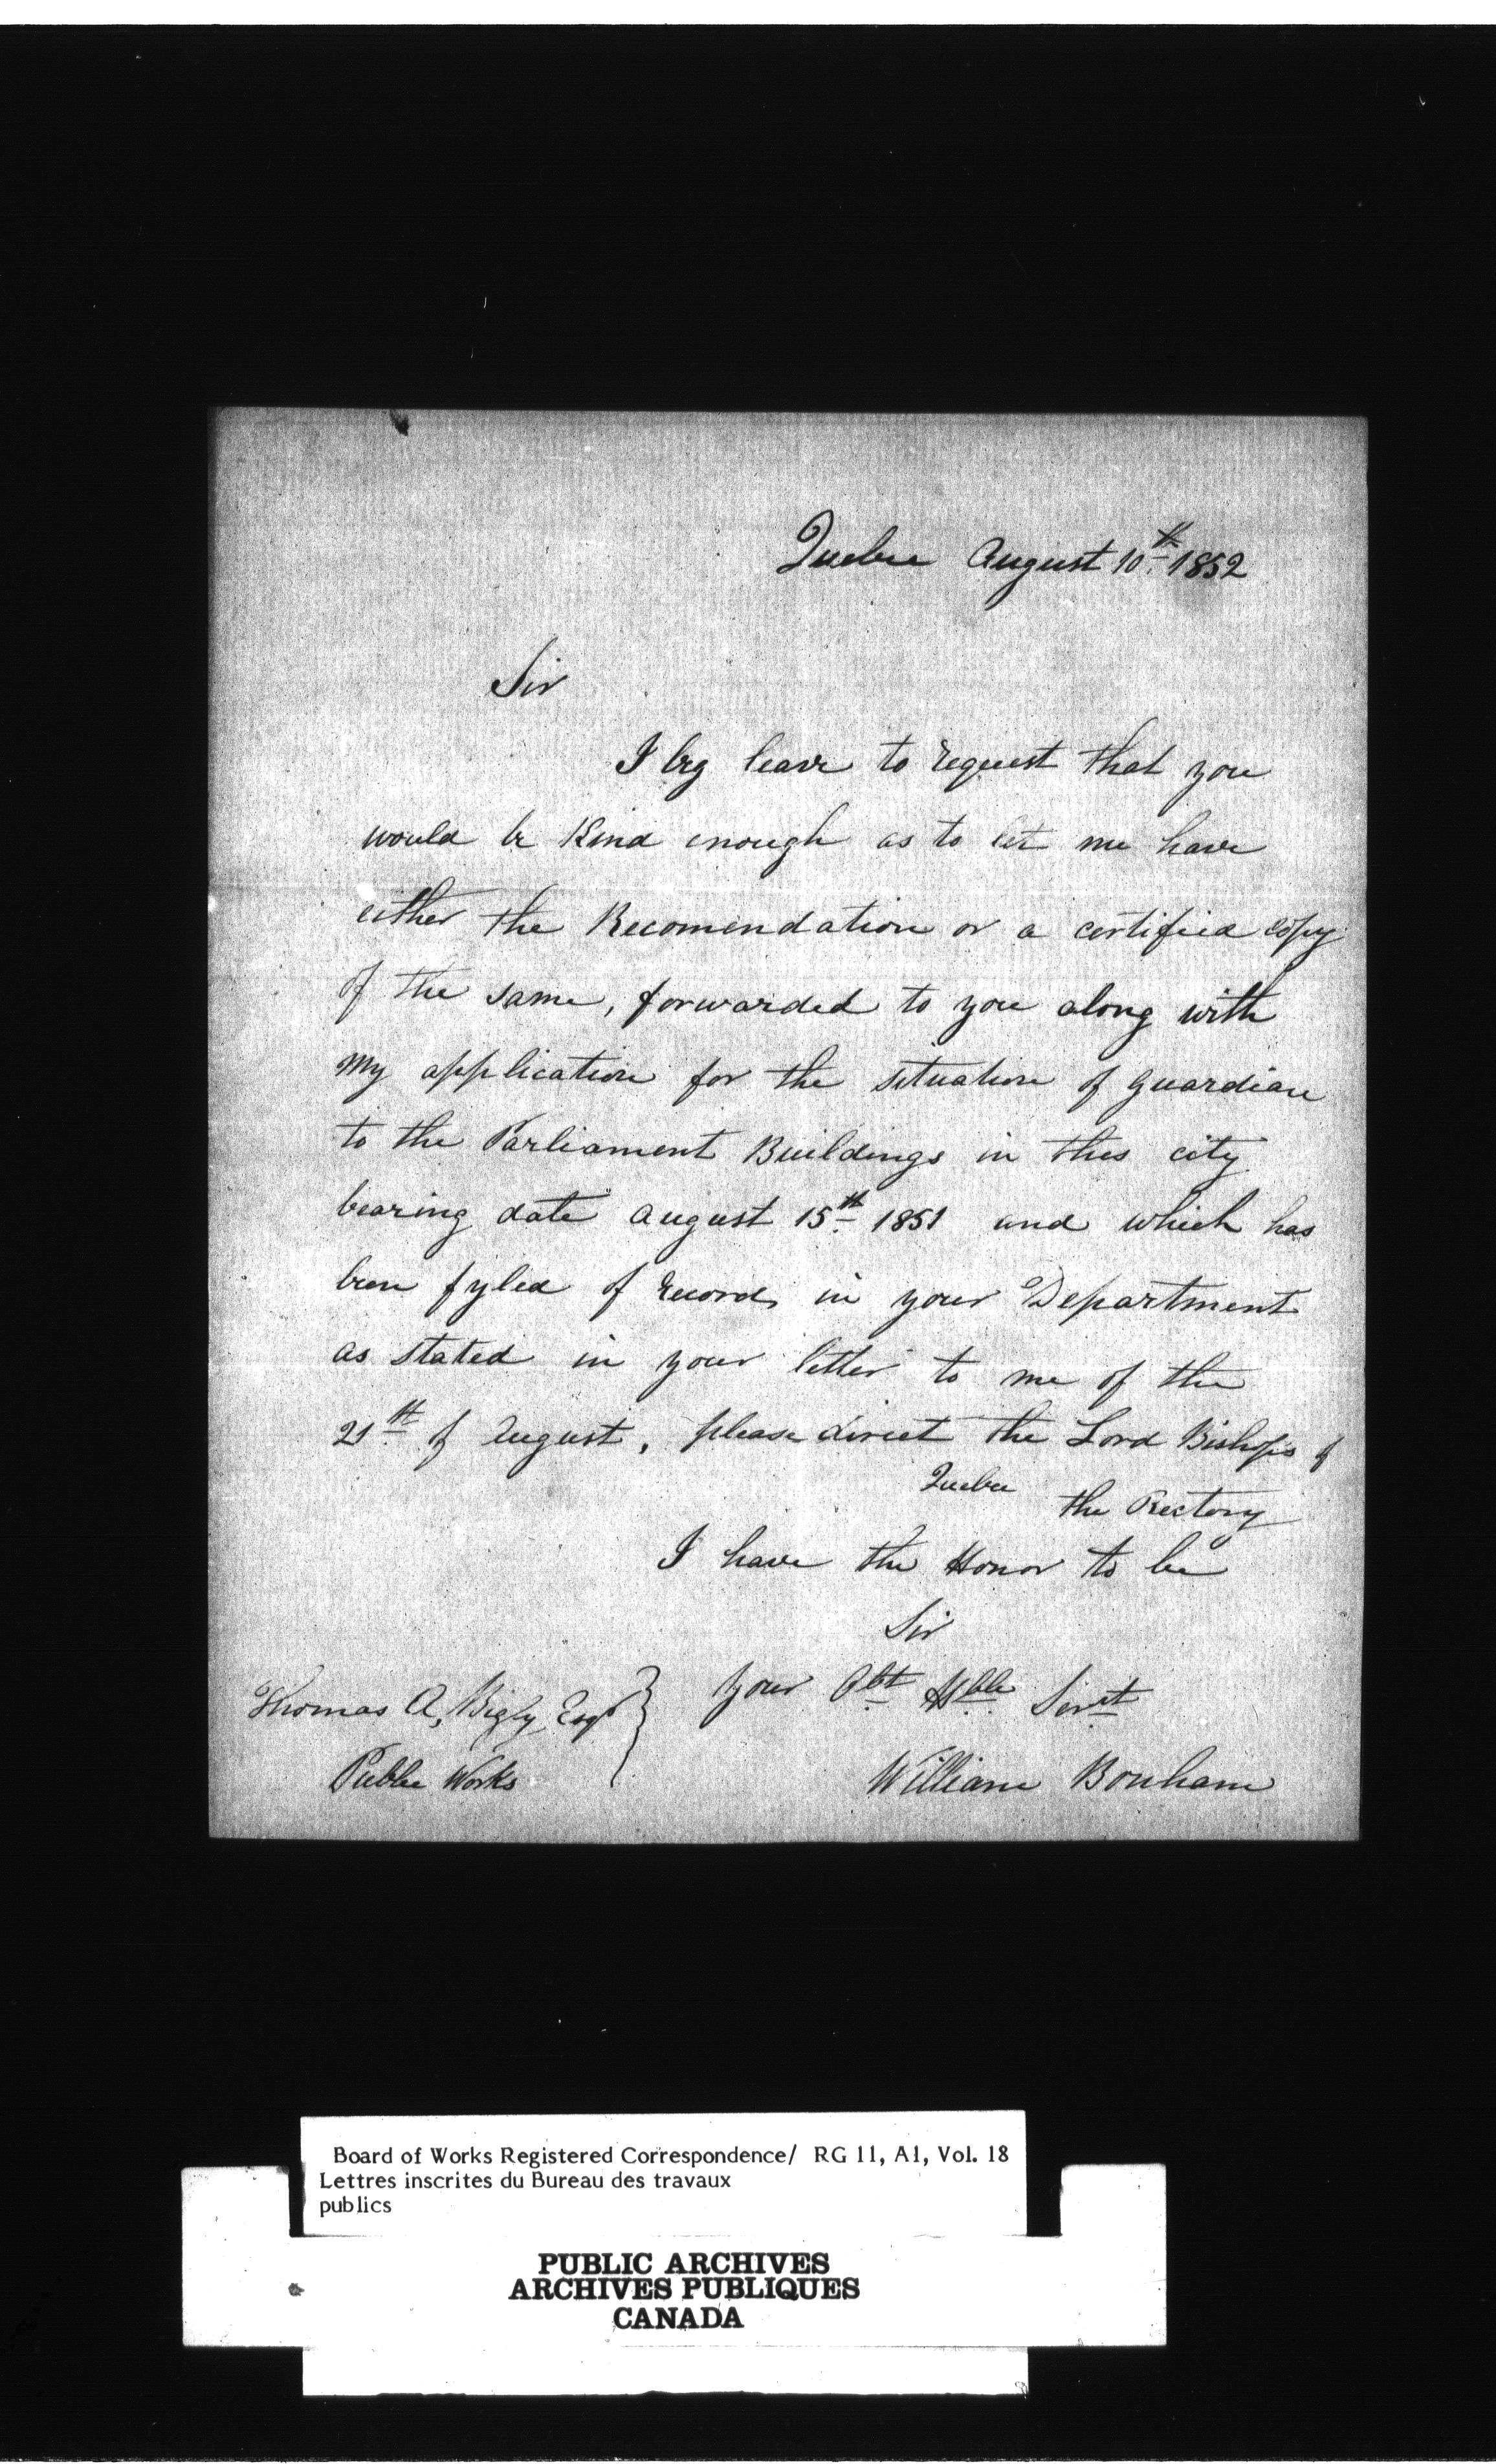 Quebec August 10th 1852
Sir
I beg leave to request that you
would be Kind enough as to let me have
either the Recomendation or a certified copy
of the same, forwarded to you along with
My application for the situation of guardian
to the Parliament Buildings in this city
bearing date August 15th 1851 and which has
been fyled of record in your Department
as stated in your letter to me of the
21st of August, please direct the Lord Bishops of
Quebec the Rectory
I have the Honor to be
Sir
Your Obt Hble Servt
Thomas A, Bigly Esqr
Public Works
William Bonham
Board of Works Registered Correspondence/ RG 11, A1, Vol. 18
Lettres inscrites du Bureau des travaux
publics
PUBLIC ARCHIVES
ARCHIVES PUBLIQUES
CANADA